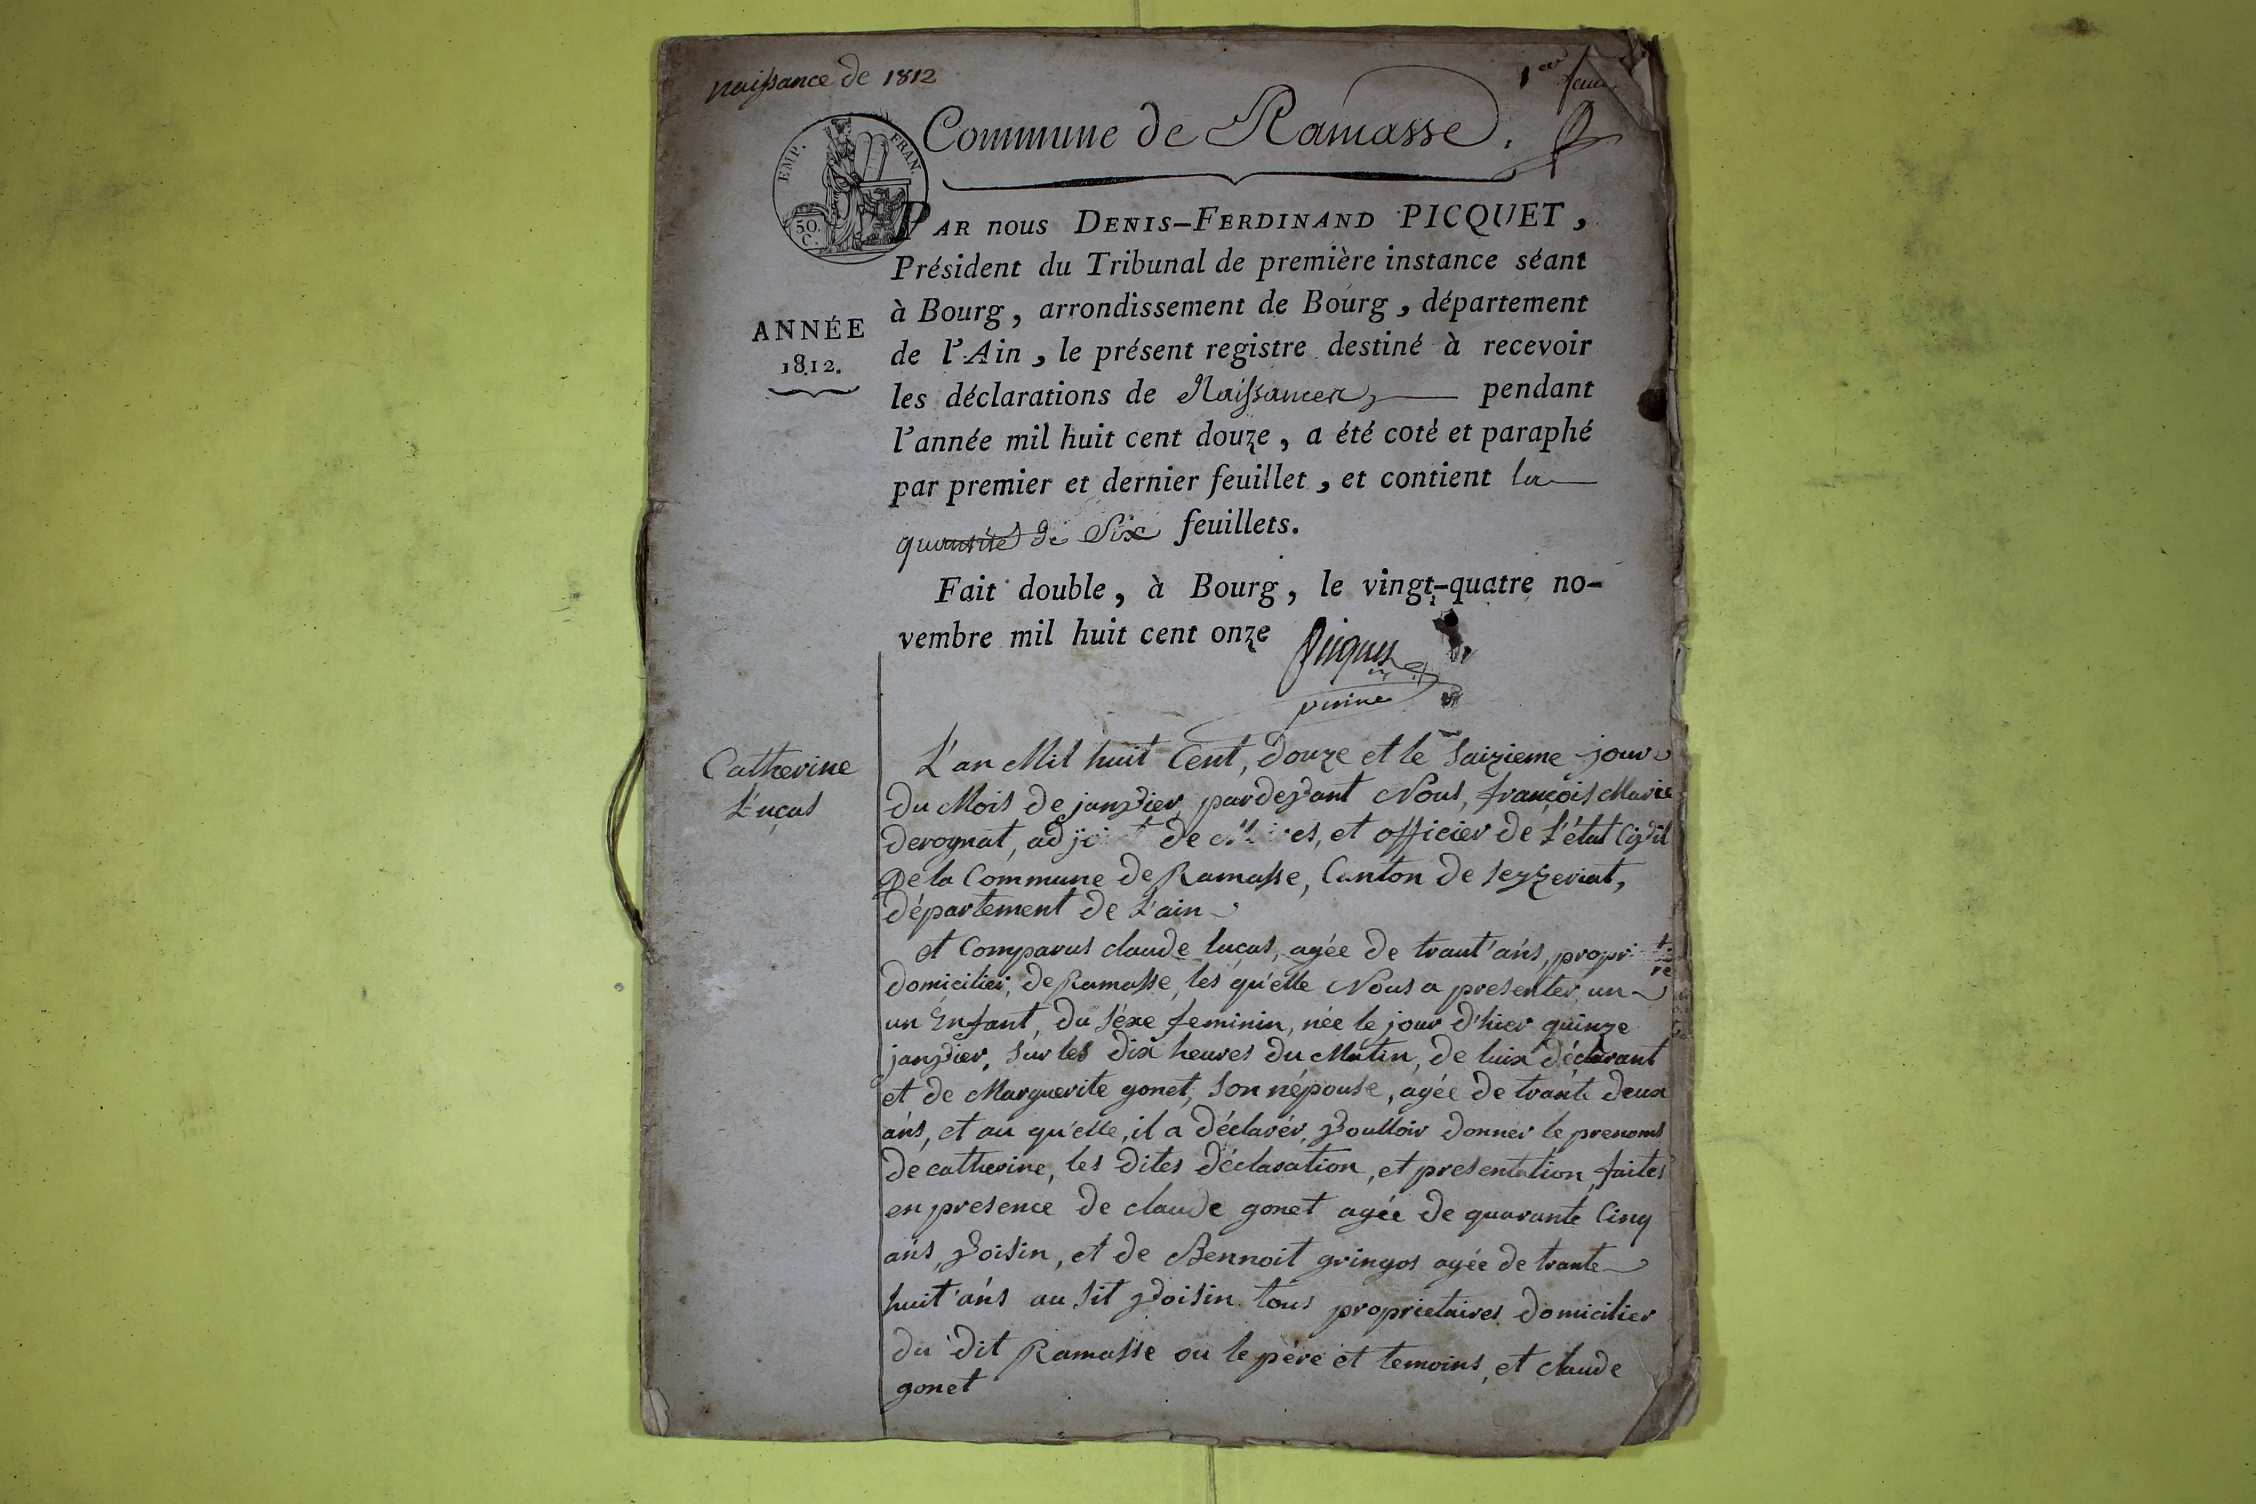 Naissance de 1812
1er
Commune de Ramasse.
EMP. FRAN.
50. C.
PAR nous DENIS-FERDINAND PICQUET,
Président du Tribunal de première instance séant
à Bourg, arrondissement de Bourg, département
ANNÉE
1812.
de l'Ain, le présent registre destiné à recevoir
les déclarations de Naissances pendant
l'année mil huit cent douze, a été coté et paraphé
par premier et dernier feuillet, et contient la
quantité de Six feuillets.
Fait double, à Bourg, le vingt-quatre no-
vembre mil huit cent onze
Picquet
Catherine
Luças
L'an Mil huit Cent, douze et le Saizieme jour
du Mois de janvier, pardevant Nous, françois Marie
derognat, adjoint de Maires, et officier de L'état Civil
De la Commune de Ramasse, Canton de Seyzeriat,
département de L'ain
et Comparus claude luças, agée de trant'ans,
domicilier, de Ramasse, les qu'elle Nous a presenter un
un Enfant, du Séxe feminin, née le jour d'hier quinze
janvier, Sur les dix heures du Matin, de luix déclarant
et de Marguerite gonet, Son népouse, agée de trante deux
ans, et au qu'elle, il a déclarér Voulloir donner le prenoms
de catherine, les dites déclaration, et presentation, faites
en presence de claude gonet agée de quarante Cinq
ans, Voisin, et de Bennoit gringos agée de trante
huit'ans au Sit Voisin tous proprietaires domicilier
du dit Ramasse ou le pére et temoins, et claude
gonet